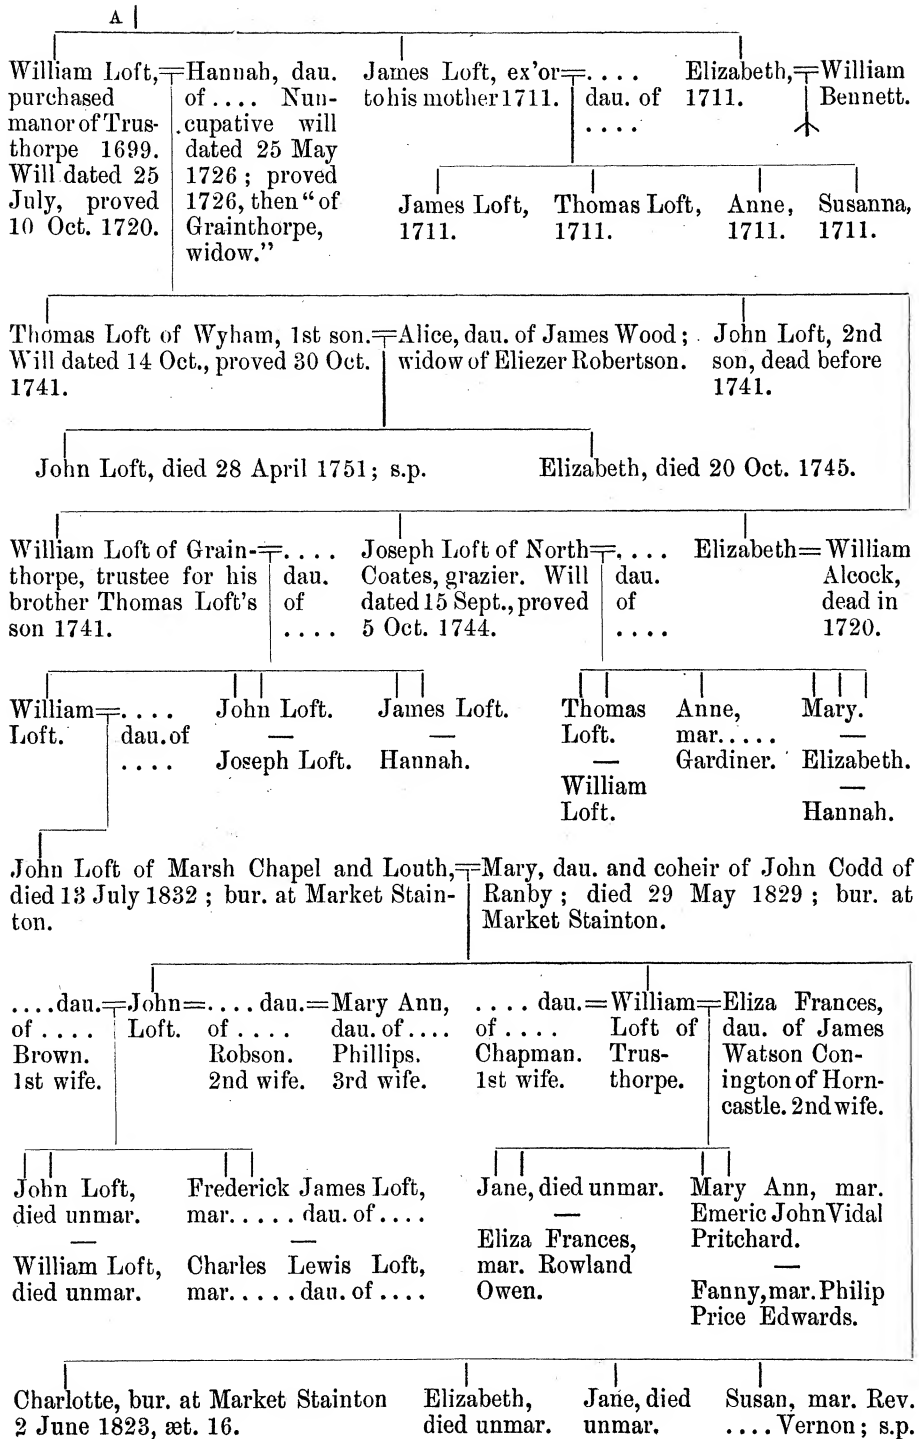 A
William Loft,
purchased
manor of Trus-
thorpe 1699.
Will dated 25
July, proved
10 Oct. 1720.
Hannah, dau.
of .... Nun-
cupative will
dated 25 May
1726 ; proved
1726, then “of
Grainthorpe,
widow.”
James Loft, ex'or
to his mother 1711.
....
dau. of
....
Elizabeth,
1711.
William
Bennett.
James Loft,
1711.
Thomas Loft,
1711.
Anne,
1711.
Susanna,
1711.
Thomas Loft of Wyham, 1st son.
Will dated 14 Oct., proved 30 Oct.
1741.
Alice, dau. of James Wood ;
widow of Eliezer Robertson.
John Loft, 2nd
son, dead before
1741.
John Loft, died 28 April 1751 ; s.p.
Elizabeth, died 20 Oct. 1745.
William Loft of Grain-
thorpe, trustee for his
brother Thomas Loft's
son 1741.
....
dau.
of
....
Joseph Loft of North
Coates, grazier. Will
dated 15 Sept., proved
5 Oct. 1744.
....
dau.
of
....
Elizabeth=William
Alcock,
dead in
1720.
William
Loft.
....
dau. of
....
John Loft.
—
Joseph Loft.
James Loft.
—
Hannah.
Thomas
Loft.
—
William
Loft.
Anne,
mar.....
Gardiner.
Mary.
—
Elizabeth.
—
Hannah.
John Loft of Marsh Chapel and Louth,
died 13 July 1832 ; bur. at Market Stain-
ton.
Mary, dau. and coheir of John Codd of
Ranby ; died 29 May 1829 ; bur. at
Market Stainton.
....dau.
of ....
Brown.
1st wife.
John=
Loft.
.... dau.=
of ....
Robson.
2nd wife.
Mary Ann,
dau. of....
Phillips.
3rd wife.
.... dau.=
of ....
Chapman.
1st wife.
William
Loft of
Trus-
thorpe.
Eliza Frances,
dau. of James
Watson Con-
ington of Horn-
castle. 2nd wife.
John Loft,
died unmar.
—
William Loft,
died unmar.
Frederick James Loft,
mar..... dau. of....
—
Charles Lewis Loft,
mar..... dau. of ....
Jane, died unmar.
—
Eliza Frances,
mar. Rowland
Owen.
Mary Ann, mar.
Emeric John Vidal
Pritchard.
—
Fanny, mar. Philip
Price Edwards.
Charlotte, bur. at Market Stainton
2 June 1823, æt. 16.
Elizabeth,
died unmar.
Jane, died
unmar.
Susan, mar. Rev.
.... Vernon ; s.p.